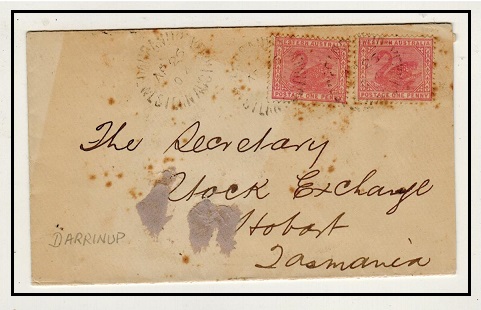 WESTERN AUSTRALIA
POSTAGE ONE PENNY
WESTERN AUSTRALIA
POSTAGE ONE PENNY
The Secretary
Stock Exchange
Hobart
Tasmania
DARRINUP